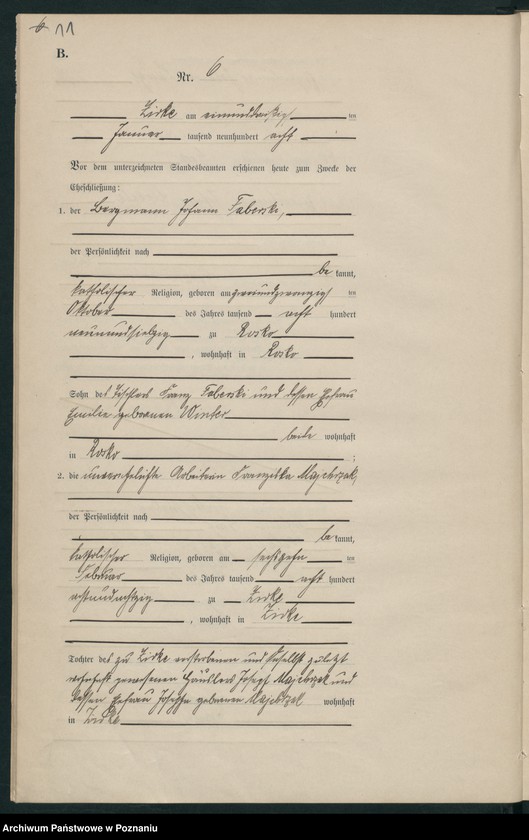 6 11
B.
Nr. 6
Zirke am einunddreißig ten
Januar tausend neunhundert acht
Vor dem unterzeichneten Standesbeamten erschienen heute zum Zwecke der
Eheschließung:
1. der Bergmann Johann Faberski,
der Persönlichkeit nach
be kannt,
katholischer Religion, geboren am zweiundzwanzig ten
Oktober des Jahres tausend acht hundert
neunundsiebzig zu Rosko
, wohnhaft in Rosko
Sohn des Tischlers Franz Faberski und dessen Ehefrau
Emilie geborenen Winter
beide wohnhaft
in Rosko ;
2. die unverehelichte Arbeiterin Franziska Majchrzak,
der Persönlichkeit nach
be kannt,
katholischer Religion, geboren am sechszehn ten
Februar des Jahres tausend acht hundert
achtundachtzig zu Zirke
, wohnhaft in Zirke
Tochter des zu Zirke verstorbenen und daselbst zuletzt
wohnhaft gewesenen Häuslers Joseph Majchrzak und
dessen Ehefrau Josepha geborenen Majchrzak wohnhaft
in Zirke
Archiwum Państwowe w Poznaniu